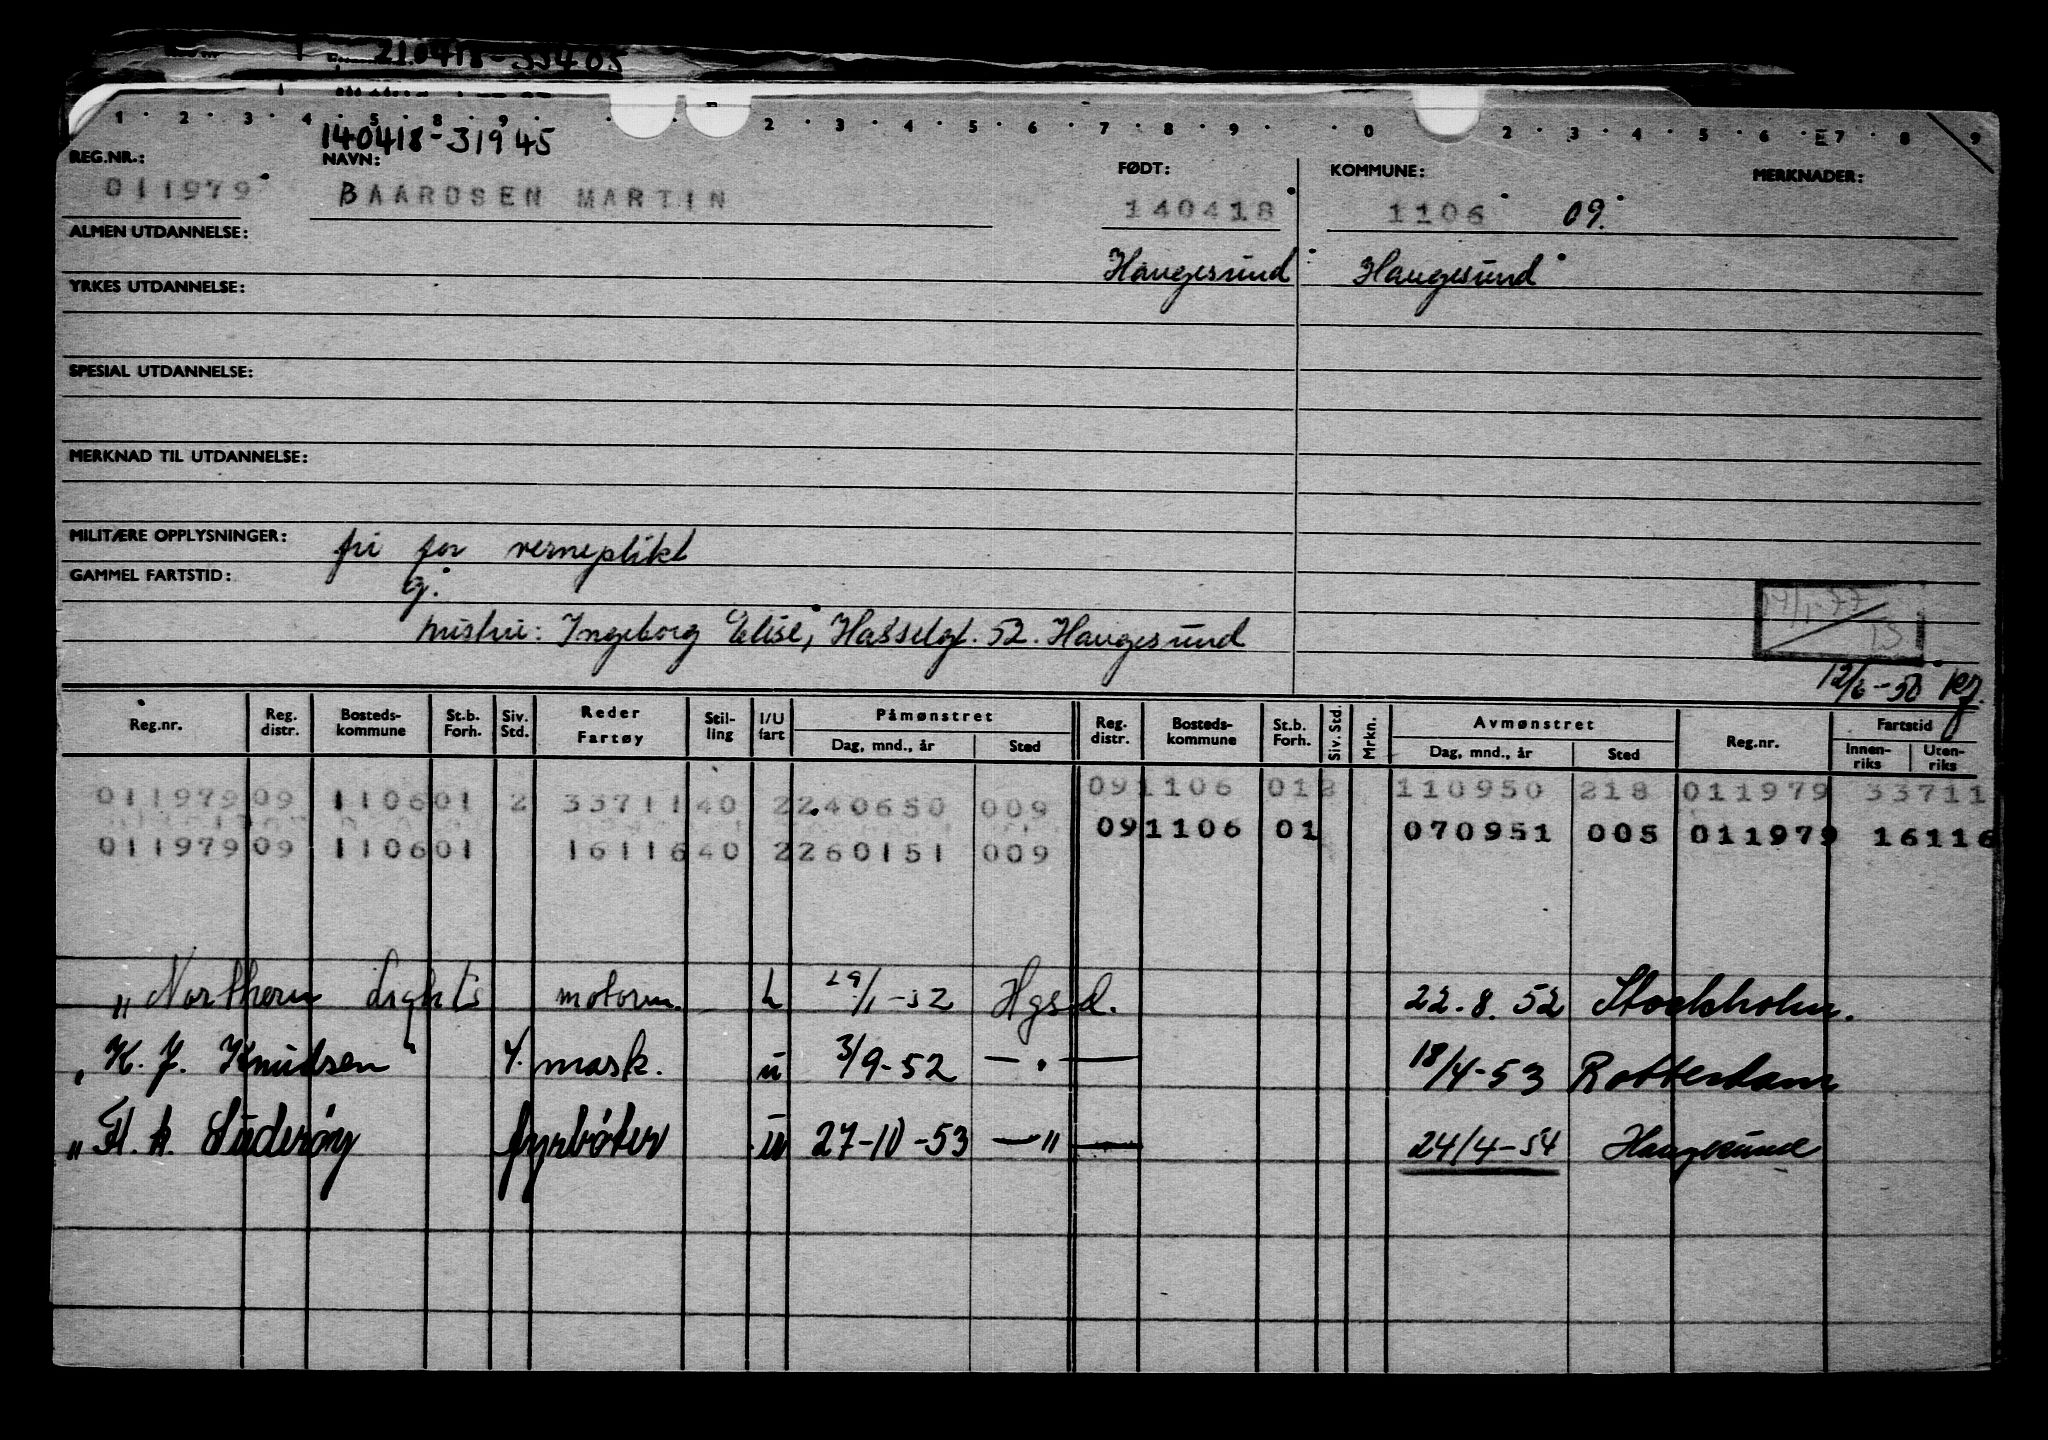 210418-33405
1 2 3 4 5 8 9 2 3 4 5 6 7 8 9 0 2 3 4 5 6 7 8 9
140418-31945
REG.NR.: NAVN: FØDT: KOMMUNE: MERKNADER:
011979 BAARDSEN MARTIN 140418 1106 09.
ALMEN UTDANNELSE:
Haugesund Haugesund
YRKES UTDANNELSE:
SPESIAL UTDANNELSE:
MERKNAD TIL UTDANNELSE:
MILITÆRE OPPLYSNINGER: fri for verneplikt
GAMMEL FARTSTID: g.
hustru: Ingeborg Elise, Hasselgt. 52. Haugesund
12/6-58
Reg.nr. Reg. distr. Bosteds-kommune St.b. Forh. Siv. Std. Reder Fartøy Stil-ling I/U fart Påmønstret Dag, mnd., år Sted Reg. distr. Bosteds-kommune St.b. Forh. Siv. Std. Mrkn. Avmønstret Dag, mnd., år Sted Reg.nr. Fartstid Innen-riks Uten-riks
011979 09 1106 01 2 33711 40 2 240650 009 09 1106 01 2 110950 218 011979 33711
011979 09 1106 01 16116 40 2 260151 009 09 1106 01 070951 005 011979 16116
"Northern Lights motorm. u 29/1-52 Hgsd. 22.8.52 Stockholm.
"K. J. Knudsen" 4. mask. u 3/9-52 —"— 18/4-53 Rotterdam
"Fl. k. Suderøy fyrbøter u 27-10-53 —"— 24/4-54 Haugesund